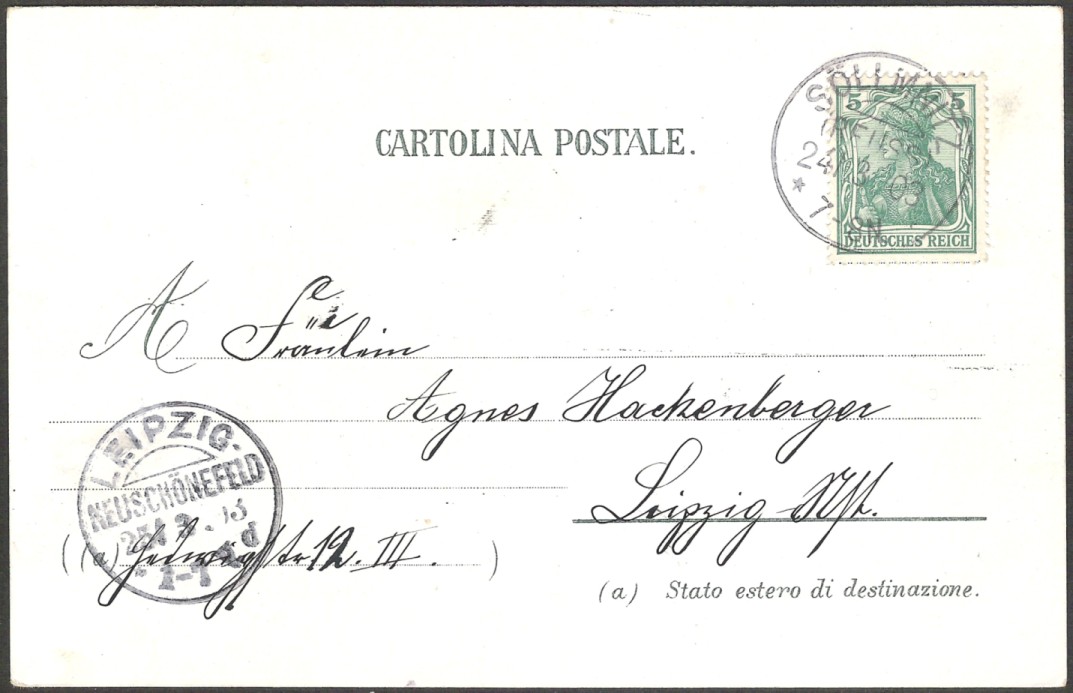 CARTOLINA POSTALE.
5 5
DEUTSCHES REICH
SÖLLMNITZ
24 03
* 7-8N
A Fräulein
Agnes Hackenberger
Leipzig Nst.
LEIPZIG.
NEUSCHÖNEFELD
(a) Hedwigstr 12. III.)
(a) Stato estero di destinazione.